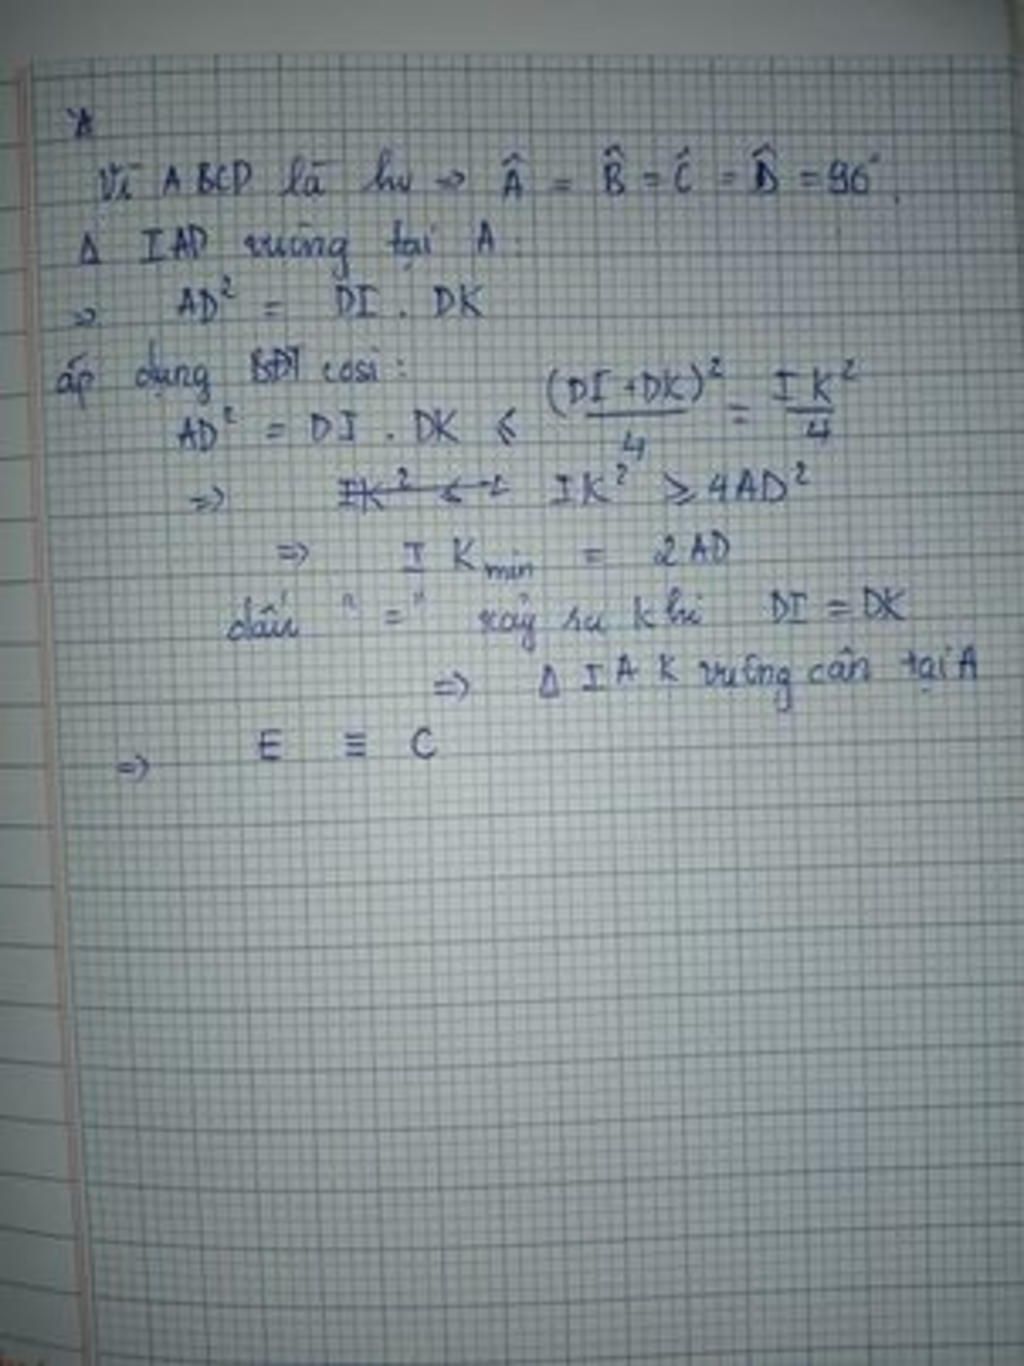 Vì ABCD là hv => Â = B̂ = Ĉ = D̂ = 90°.
Δ IAD vuông tại A :
=> AD² = DI . DK
áp dụng BĐT cosi :
AD² = DI . DK ≤ (DI + DK)²/4 = IK²/4
=> IK² ≥ 4AD²
=> IK min = 2AD
dấu "=" xảy ra khi DI = DK
=> Δ IAK vuông cân tại A
=> E ≡ C